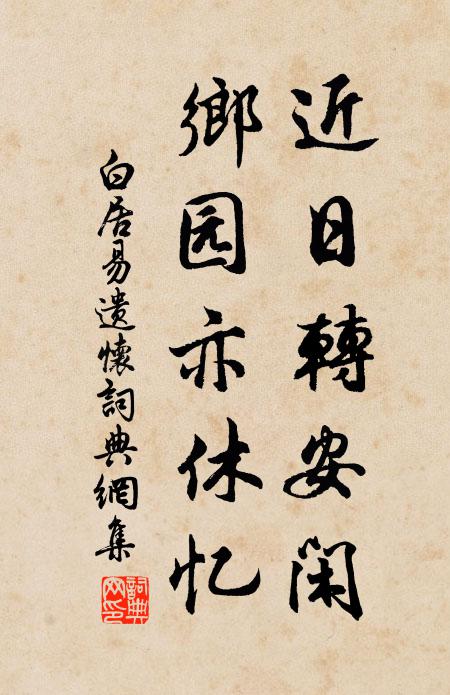 近日轉安閑
鄉园亦休忆
白居易遺懷詞典網集
詞典
网印